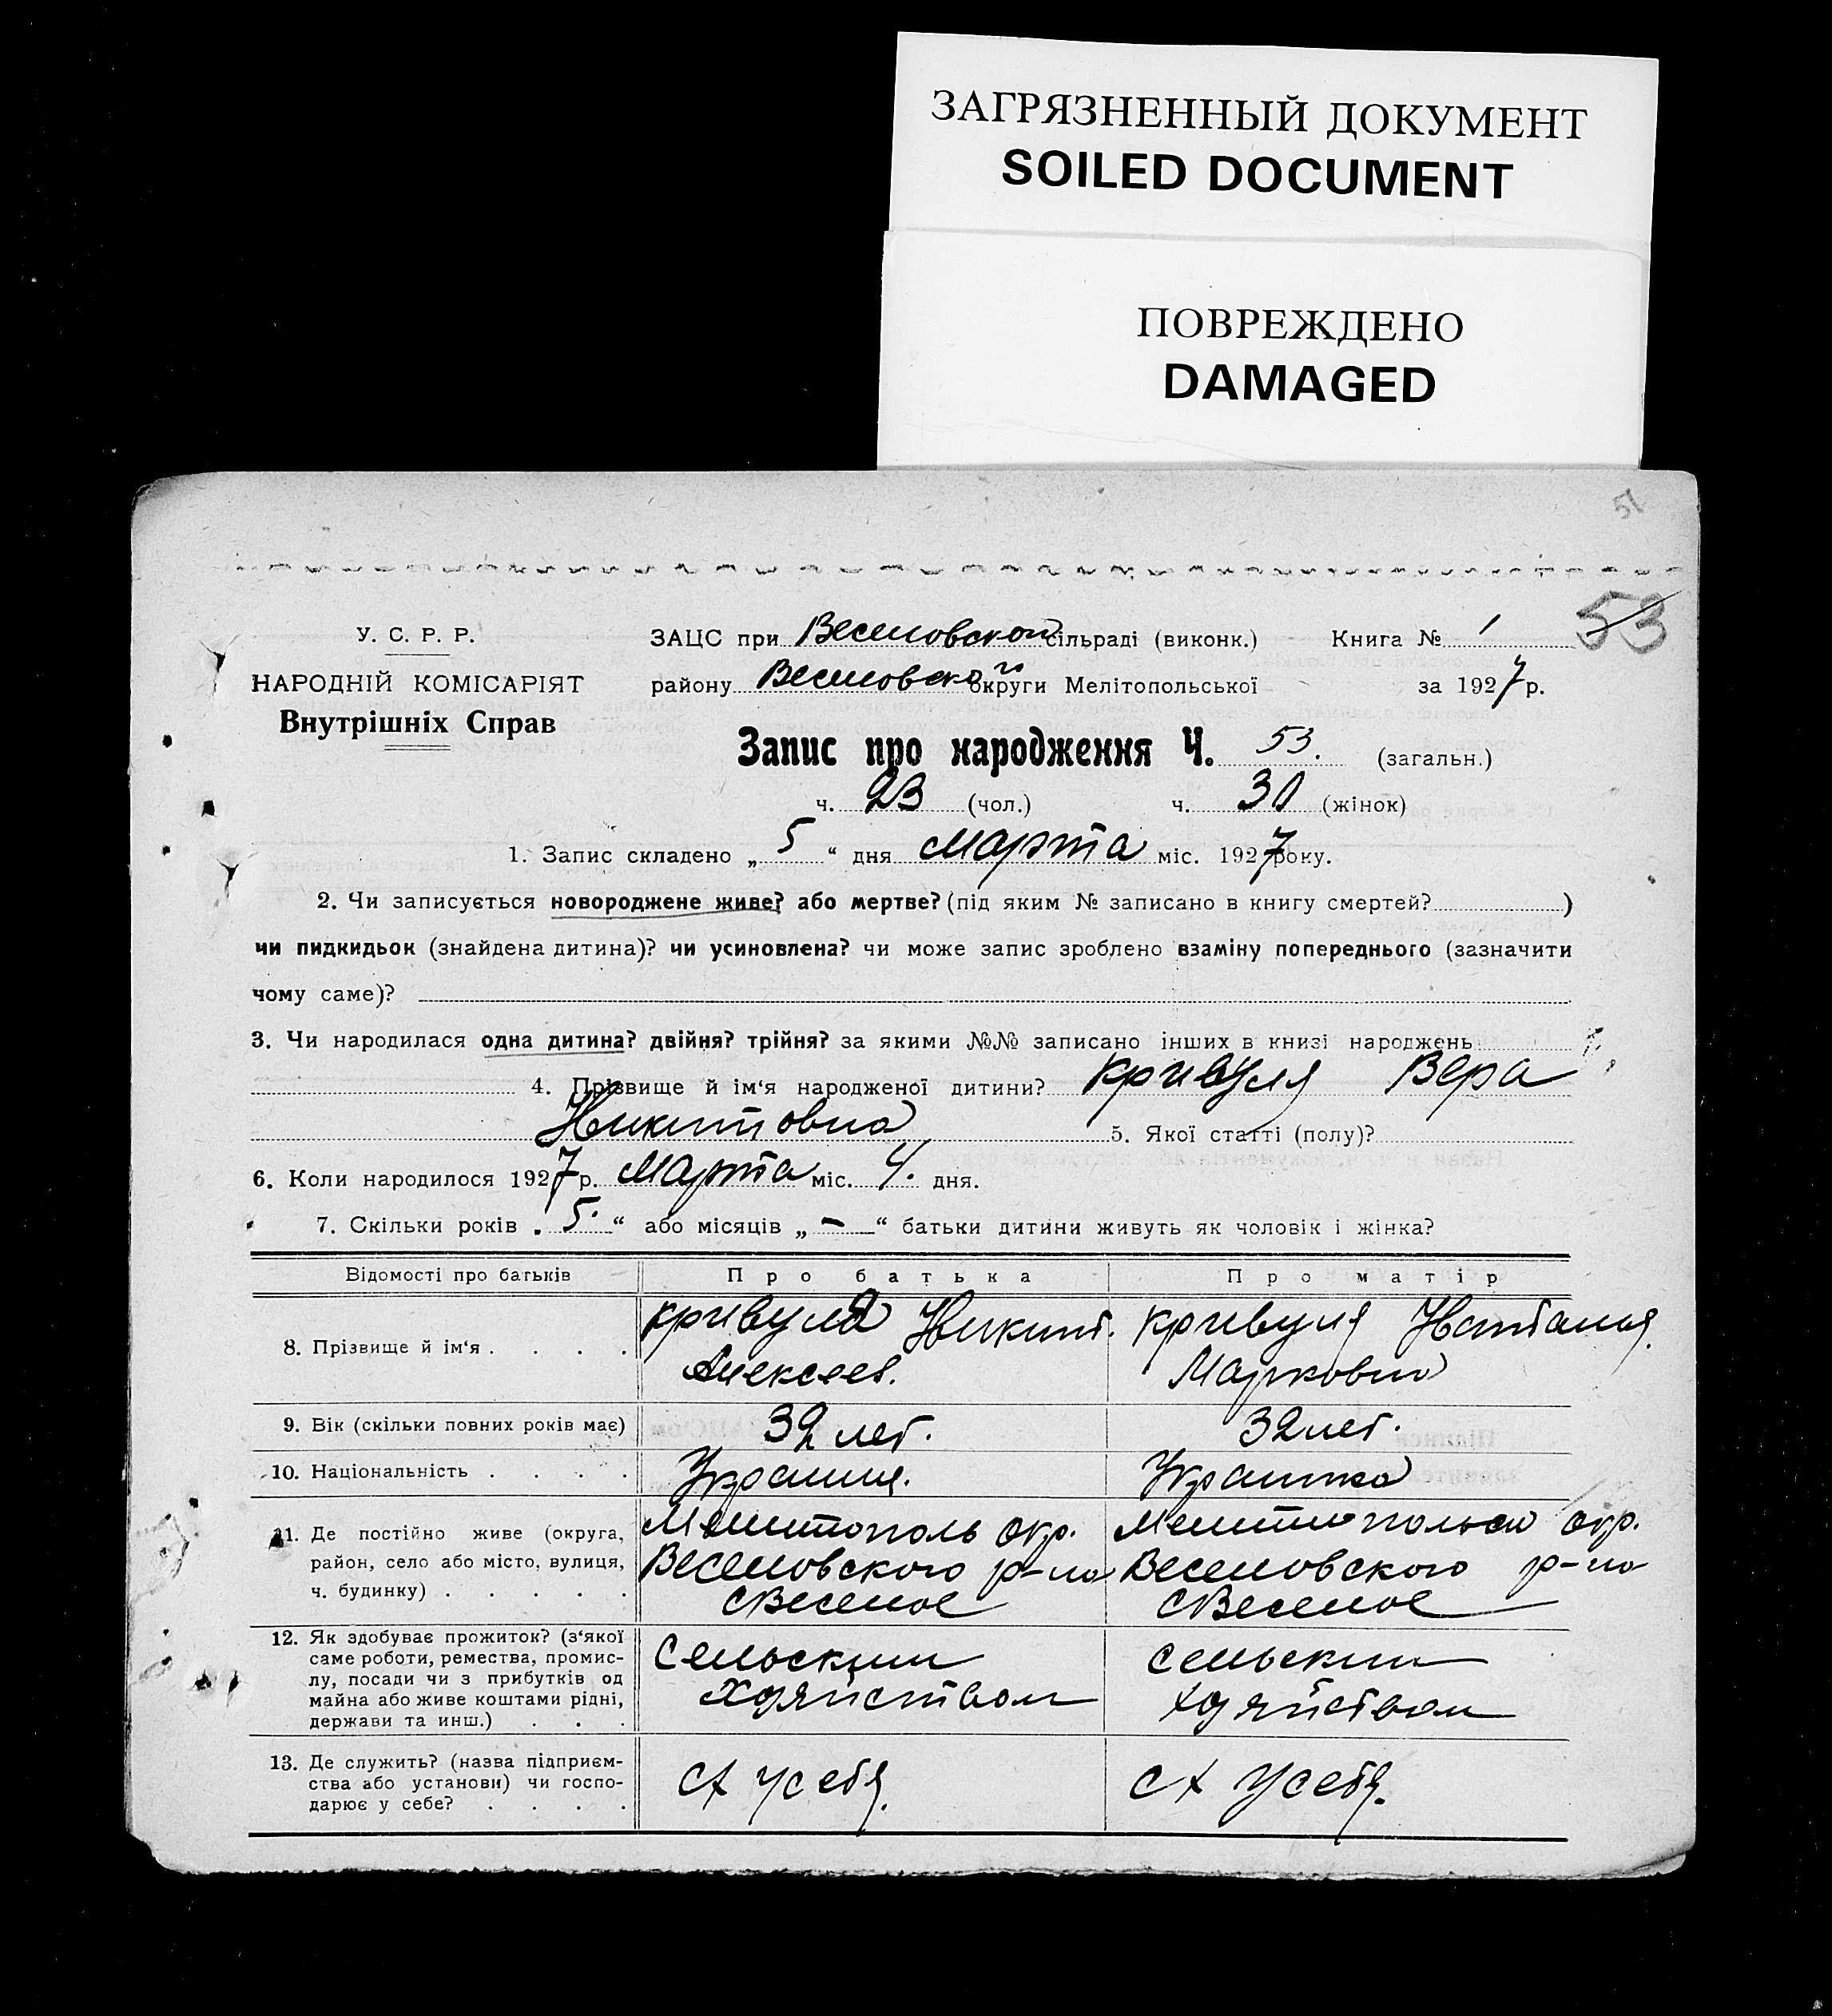 ЗАГРЯЗНЕННЫЙ ДОКУМЕНТ
SOILED DOCUMENT
ПОВРЕЖДЕНО
DAMAGED
51
53
У. С. Р. Р.
НАРОДНІЙ КОМІСАРІЯТ
Внутрішніх Справ
ЗАЦС при Веселовской сільраді (виконк.) Книга № 1
району Веселовского округи Мелітопольської за 1927 р.
Запис про народження Ч. 53. (загальн.)
ч. 23 (чол.) ч. 30 (жінок)
1. Запис складено „ 5 “ дня Марта міс. 1927 року.
2. Чи записується новороджене живе? або мертве? (під яким № записано в книгу смертей? )
чи пидкидьок (знайдена дитина)? чи усиновлена? чи може запис зроблено взаміну попереднього (зазначити
чому саме)?
3. Чи народилася одна дитина? двійня? трійня? за якими №№ записано інших в книзі народжень
4. Прізвище й ім‘я народженої дитини? Кривуля Вера
Никитовна 5. Якої статті (полу)?
6. Коли народилося 1927 р. Марта міс. 4. дня.
7. Скільки років „ 5. “ або місяців „ – “ батьки дитини живуть як чоловік і жінка?
Відомості про батьків Про батька Про матір
8. Прізвище й ім‘я . . . . Кривуля Никит. Кривуля Наталья
Алексеев. Марковна
9. Вік (скільки повних років має) 32 лет. 32 лет.
10. Національність . . . . Украинец. Украинка
11. Де постійно живе (округа, Мелитополь окр. Мелитопольск окр.
район, село або місто, вулиця, Веселовского р-на Веселовского р-на
ч. будинку) . . . . . с Веселое с Веселое
12. Як здобуває прожиток? (з‘якої
саме роботи, ремества, промис- Сельским сельским
лу, посади чи з прибутків од
майна або живе коштами рідні, хозяйством хозяйством
держави та инш.) . . .
13. Де служить? (назва підприєм-
ства або установи) чи госпо- сх у себя. сх у себя.
дарює у себе? . . . .